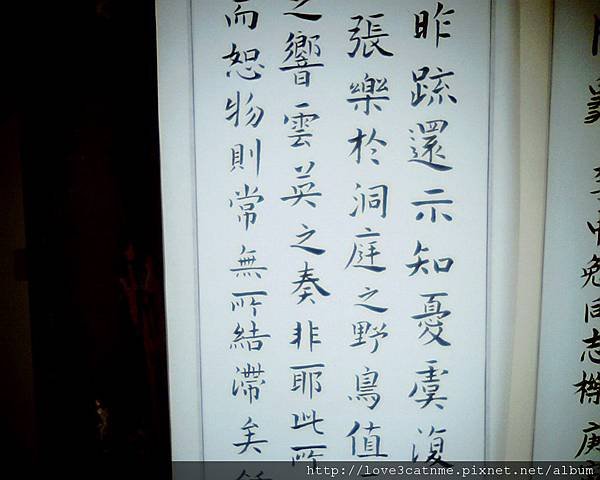 中勉同志
昨疏還示知憂虞復
張樂於洞庭之野鳥值
之響雲英之奏非耶此所
而恕物則常無所結滯矣
http://love3catnme.pixnet.net/album